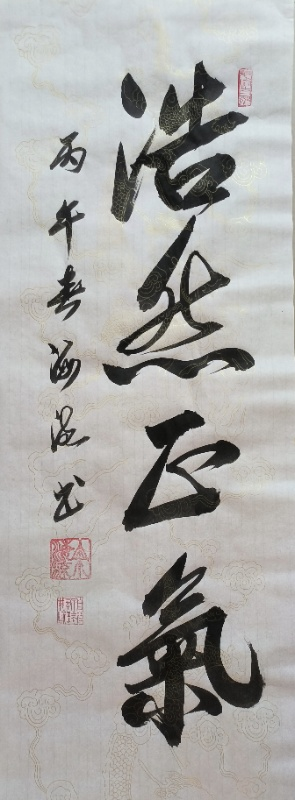 浩然正氣
丙午春海源书